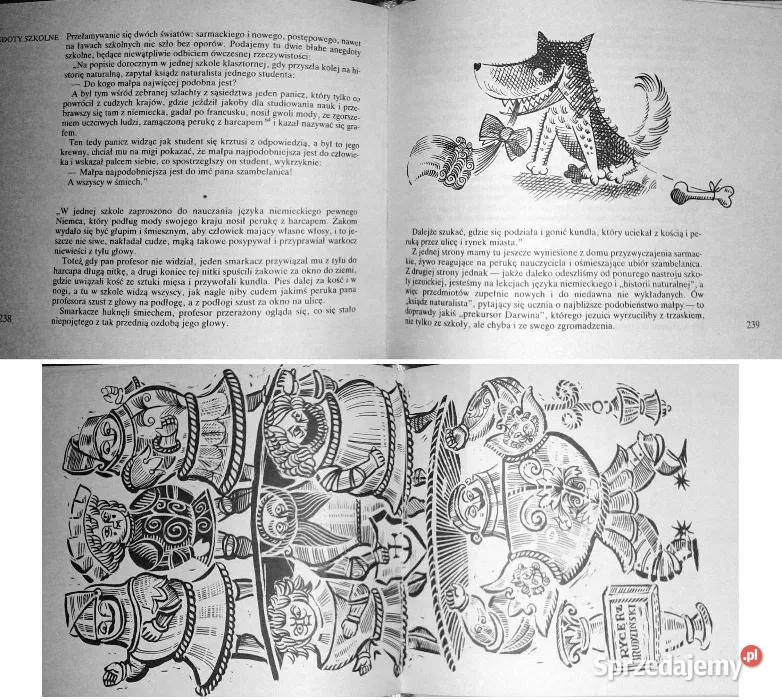 DOTY SZKOLNE
Przełamywanie się dwóch światów: sarmackiego i nowego, postępowego, nawet
na ławach szkolnych nie szło bez oporów. Podajemy tu dwie błahe anegdoty
szkolne, będące niewątpliwie odbiciem ówczesnej rzeczywistości:
„Na popisie dorocznym w jednej szkole klasztornej, gdy przyszła kolej na hi-
storię naturalną, zapytał ksiądz naturalista jednego studenta:
— Do kogo małpa najwięcej podobna jest?
A był tym wśród zebranej szlachty z sąsiedztwa jeden panicz, który tylko co
powrócił z cudzych krajów, gdzie jeździł jakoby dla studiowania nauk i prze-
brawszy się tam z niemiecka, gadał po francusku, nosił gwoli mody, ze zgorsze-
niem uczciwych ludzi, zamączoną perukę z harcapem i kazał nazywać się gra-
fem.
Ten tedy panicz widząc jak student się krztusi z odpowiedzią, a był to jego
krewny, chciał mu na migi pokazać, że małpa najpodobniejsza jest do człowie-
ka i wskazał palcem siebie, co spostrzegłszy on student, wykrzyknie:
— Małpa najpodobniejsza jest do imć pana szambelanica!
A wszyscy w śmiech.”
*
„W jednej szkole zaproszono do nauczania języka niemieckiego pewnego
Niemca, który podług mody swojego kraju nosił perukę z harcapem. Żakom
wydało się być głupim i śmiesznym, aby człowiek mający własne włosy, i to je-
szcze nie siwe, nakładał cudze, mąką takowe posypywał i przyprawiał warkocz
niewieści z tyłu głowy.
Toteż gdy pan profesor nie widział, jeden smarkacz przywiązał mu z tyłu do
harcapa długą nitkę, a drugi koniec tej nitki spuścili żakowie za okno do ziemi,
gdzie uwiązali kość ze sztuki mięsa i przywołali kundla. Pies dalej za kość i w
nogi, a tu w szkole widzą wszyscy, jak nagle niby cudem jakimś peruka pana
profesora szust z głowy na podłogę, a z podłogi szust za okno na ulicę.
Smarkacze huknęli śmiechem, profesor przerażony ogląda się, co się stało
niepojętego z tak przednią ozdobą jego głowy.
238
Dalejże szukać, gdzie się podziała i gonić kundla, który uciekał z kością i pe-
ruką przez ulicę i rynek miasta.”
Z jednej strony mamy tu jeszcze wyniesione z domu przyzwyczajenia sarmac-
kie, żywo reagujące na perukę nauczyciela i ośmieszające ubiór szambelanica.
Z drugiej strony jednak — jakże daleko odeszliśmy od ponurego nastroju szko-
ły jezuickiej, jesteśmy na lekcjach języka niemieckiego i „historii naturalnej”, a
więc przedmiotów zupełnie nowych i do niedawna nie wykładanych. Ów
„ksiądz naturalista”, pytający się ucznia o najbliższe podobieństwo małpy — to
doprawdy jakiś „prekursor Darwina”, którego jezuici wyrzuciliby z trzaskiem,
nie tylko ze szkoły, ale chyba i ze swego zgromadzenia.
239
RYCERZ
Sprzedajemy.pl